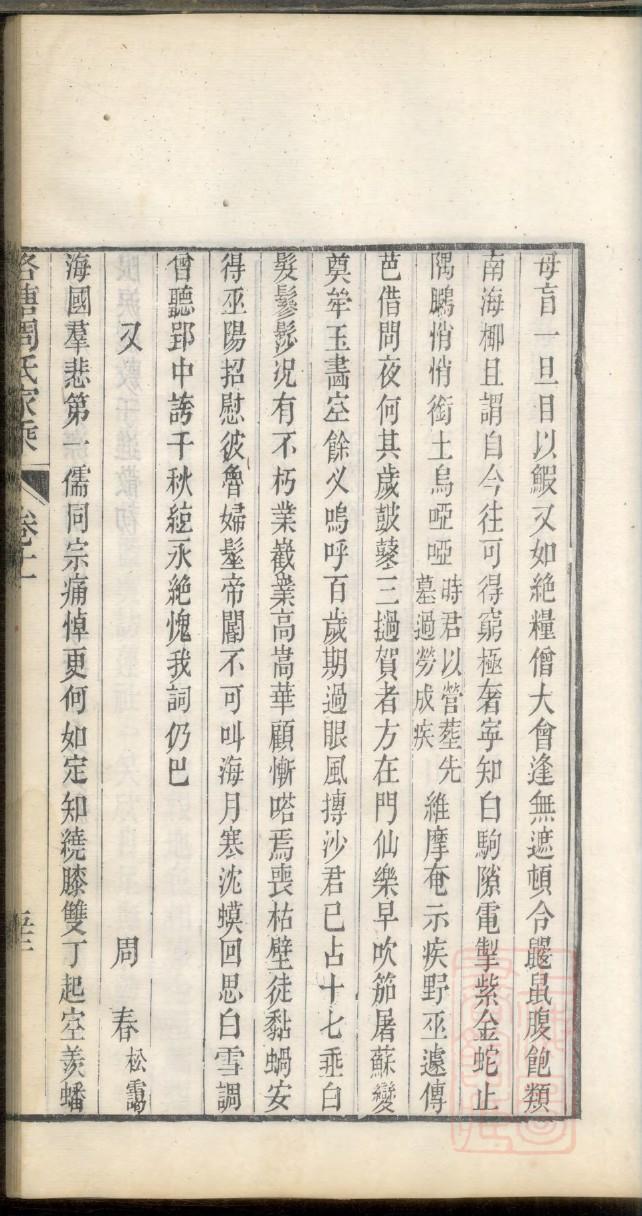 母盲一旦目以鰕又如絶糧僧大會逢無遮頓令鼴鼠腹飽類
南海梛且謂自今往可得窮極奢寜知白駒隙電掣紫金蛇止
隅鵩悄悄銜土烏啞啞時君以營塟先墓過勞成疾維摩奄示疾野巫遽傳
芭借問夜何其歲皷鼕三撾賀者方在門仙樂早吹笳屠蘇變
奠斝玉晝空餘乂嗚呼百歲期過眼風摶沙君已占十七乖白
髮鬖髿况有不朽業嶻業高嵩華顧慚嗒焉喪枯壁徒黏蝸安
得巫陽招慰彼魯婦髽帝閽不可叫海月寒沈蟆回思白雪調
曾聽郢中誇千秋絃永絶愧我詞仍巴
又 周春松靄
海國羣悲第一儒同宗痛悼更何如定知繞膝雙丁起空羨蟠
洛塘周氏家乘 卷十一